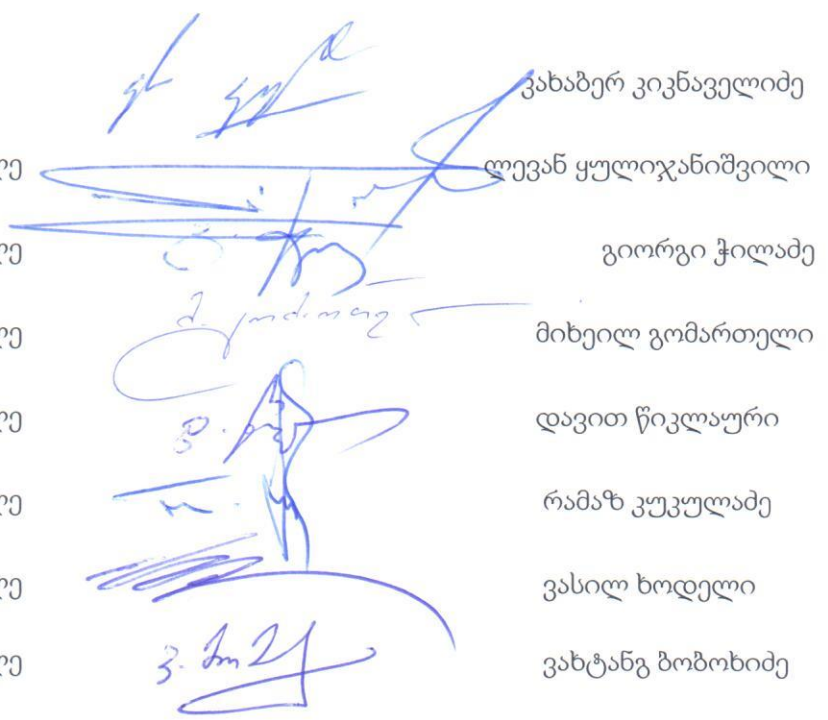 კახაბერ კიკნაველიძე
ლე ლევან ყულიჯანიშვილი
ლე გიორგი ჭილაძე
ლე მიხეილ გომართელი
ლე დავით წიკლაური
ლე რამაზ კუკულაძე
ლე ვასილ ხოდელი
ლე ვახტანგ ბობოხიძე